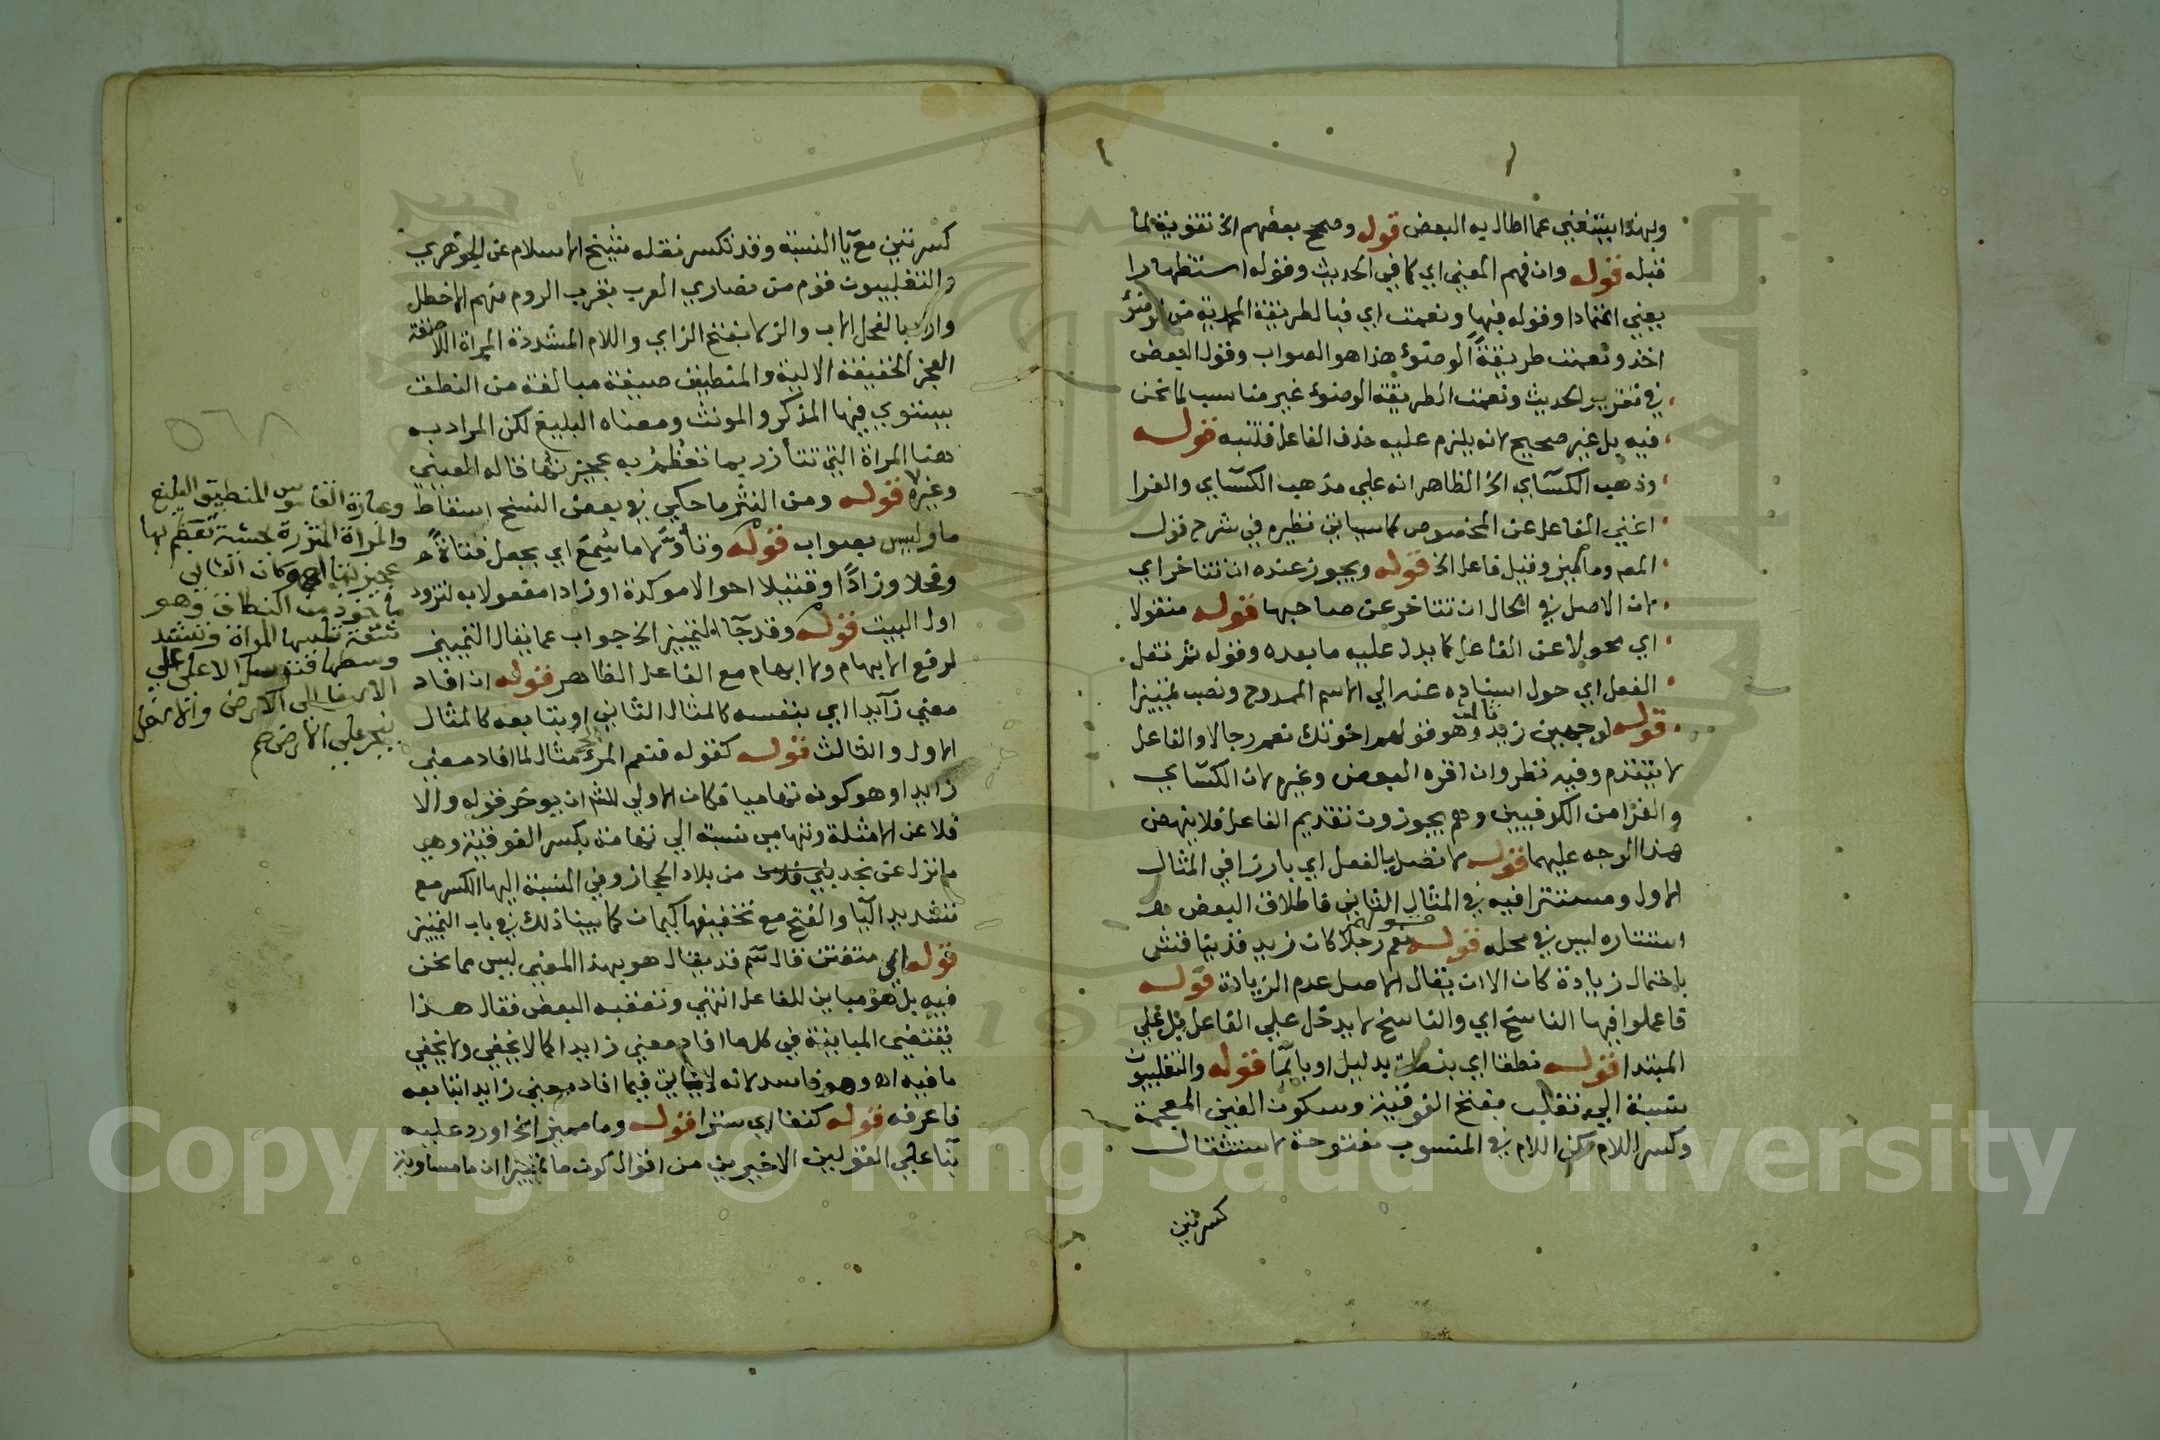 وبهذا يستغني عما اطال به البعض قوله وصحح بعضهم الخ تقوية لما
قبله قوله وان فهم المعني اي كما في الحديث وقوله استظهارا
يعني اعتمادا وقوله فبها ونعمت اي فبالطريقة المحمدية من الوضوء
اخذ ونعمت طريقة الوضوء هذا هو الصواب وقول البعض
في تقرير الحديث ونعمت الطريقة الوضوء غير مناسب لما نحن
فيه بل غير صحيح لانه يلزم عليه حذف الفاعل فلتنبه قوله
وذهب الكسآي الخ الظاهر انه علي مذهب الكسآي والفرا
اغني الفاعل عن المخصوص كما سياتي نظيره في شرح قول
المص وما مميز وقيل فاعل الخ قوله ويجوز عنده ان تتاخر اي
لان الاصل في الحال ان تتاخر عن صاحبها قوله منقولا
اي محولا عن الفاعل كما يدل عليه ما بعده وقوله ثم نقل
الفعل اي حول اسناده عنه الي الاسم الممدوح ونصب تمييزا
قوله لوجهين زيد ثالث وهو قولهم اخوتك نعم رجالا والفاعل
لا يتقدم وفيه نظر وان اقره البعض وغيره لان الكسآي
والفرا من الكوفيين وهم يجوزون تقديم الفاعل فلا ينهض
هذا الوجه عليهما قوله لاتصل بالفعل اي بارزا في المثال
الاول ومستترا فيه في المثال الثاني فاطلاق البعض
استتاره ليس في محله قوله نعم رجلا كان زيد قد يناقش
باحتمال زيادة كان الا ان يقال الاصل عدم الزيادة قوله
فاعملوا فيها الناسخ اي والناسخ لا يدخل علي الفاعل بل علي
المبتدا قوله نطقا اي بنطق بدليل او بايما قوله والتغلبيون
نسبة الي تغلب بفتح الفوقية وسكون الغين المعجمة
وكسر اللام لكن اللام في المنسوب مفتوحة لاستثقال
كسرتين
كسرتين مع يا النسبة وقد تكسر نقله شيخ الاسلام عن الجوهري
والتغلبيون قوم من نصاري العرب بقرب الروم منهم الاخطل
واراد بالفحل الاب والزلا بفتح الزاي واللام المشددة المراة اللاصقة
العجز الخفيفة الالية والمنطيق صيغة مبالغة من النطق
يستوي فيها المذكر والمونث ومعناه البليغ لكن المراد به
هنا المراة التي تتأزر بما تعظم به عجيزتها قاله العيني
وغيره قوله ومن النثر ما حكي في بعض النسخ اسقاط
ما وليس بصواب قوله وتأوّل ما سُمع اي بجعل فتاةً
وفحلا وزادًا وقتيلا احوالا موكدة او زادا مفعولا به لتزود
اول البيت قوله وقد جآ التمييز الخ جواب عما يقال التمييز
لرفع الابهام ولا ابهام مع الفاعل الظاهر قوله ان افاد
معني زآيدا اي بنفسه كالمثال الثاني او بتابعه كالمثال
الاول والثالث قوله كقوله فنعم المرء الخ مثال لما افاد معني
زايدا وهو كونه تهاميا فكان الاولي للش ان يوخر قوله والا
فلا عن الامثلة وتهامي نسبة الي تهامة بكسر الفوقية وهي
ما نزل عن نجد من بلاد الحجاز وفي النسبة اليها الكسر مع
تشديد اليا والفتح مع تخفيفها كيمان كما بينا ذلك في باب التمييز
قوله اي متفتن قال سم قد يقال هو بهذا المعني ليس مما نحن
فيه بل هو مباين للفاعل انتهي وتعقبه البعض فقال هذا
يقتضي المباينة في كل ما افاد معني زايدا كما لا يخفي ولا يخفي
ما فيه اه وهو فاسد لانه لا تباين فيما افاد معني زايدا بتابعه
فاعرفه قوله كنفا اي سترا قوله وما مميز الخ اورد عليه
بنآ علي القولين الاخيرين من اقوال كون ما تمييزا ان ما مساوية
وعبارة القاموس المنطيق البليغ
والمراة المتزرة بحشية تعظم بها
عجيزتها اهـ وكان الثاني
ماخوذ من النطاق وهو
شقة تلبسها المراة وتشد
وسطها فترسل الاعلي علي
الاسفل الي الارض والاسفل
ينجر علي الارض
Copyright © King Saud University